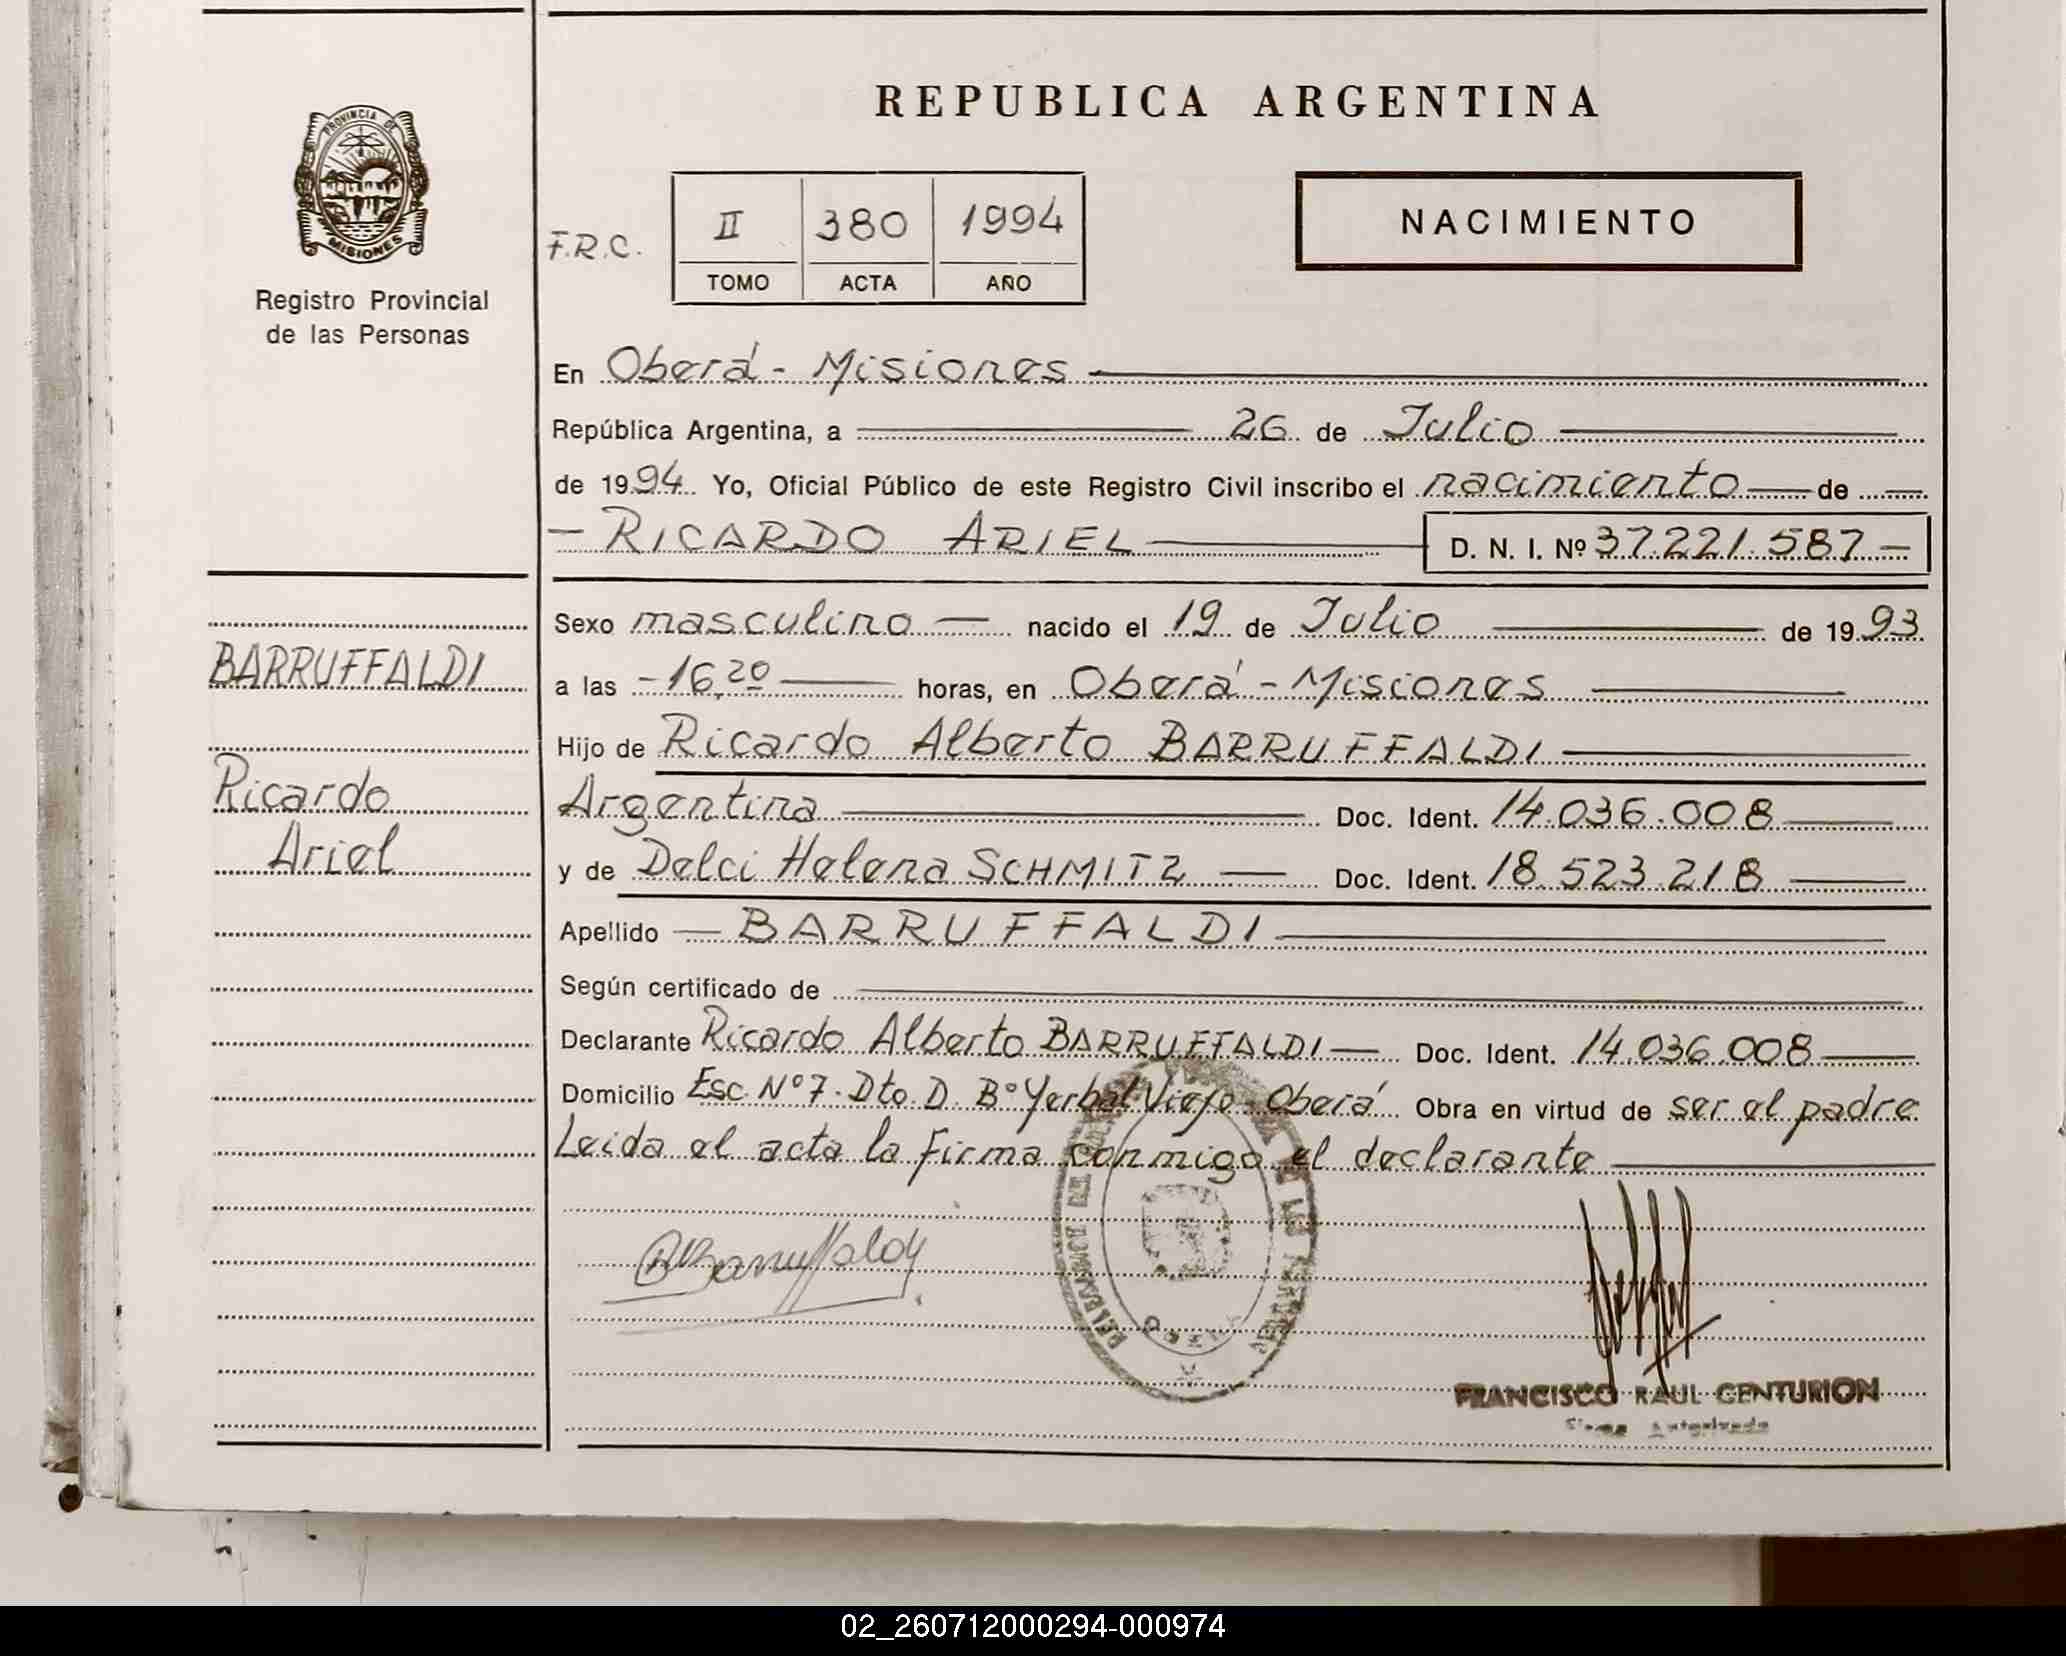 REPUBLICA ARGENTINA
PROVINCIA DE
MISIONES
Registro Provincial
de las Personas
F.R.C.
II 380 1994
TOMO ACTA AÑO
NACIMIENTO
En Oberá - Misiones
República Argentina, a 26 de Julio
de 1994. Yo, Oficial Público de este Registro Civil inscribo el nacimiento de
RICARDO ARIEL D. N. I. Nº 37.221.587
Sexo masculino nacido el 19 de Julio de 1993
a las 16,20 horas, en Oberá - Misiones
Hijo de Ricardo Alberto BARRUFFALDI
Argentina Doc. Ident. 14.036.008
y de Delci Helena SCHMITZ Doc. Ident. 18.523.218
Apellido BARRUFFALDI
Según certificado de
Declarante Ricardo Alberto BARRUFFALDI Doc. Ident. 14.036.008
Domicilio Esc. Nº 7. Dto. D. Bº Yerbal Viejo - Oberá Obra en virtud de ser el padre
Leida el acta la firma conmigo el declarante
BARRUFFALDI
Ricardo
Ariel
RBarruffaldi
FRANCISCO RAUL CENTURION
Firma Autorizada
02_260712000294-000974